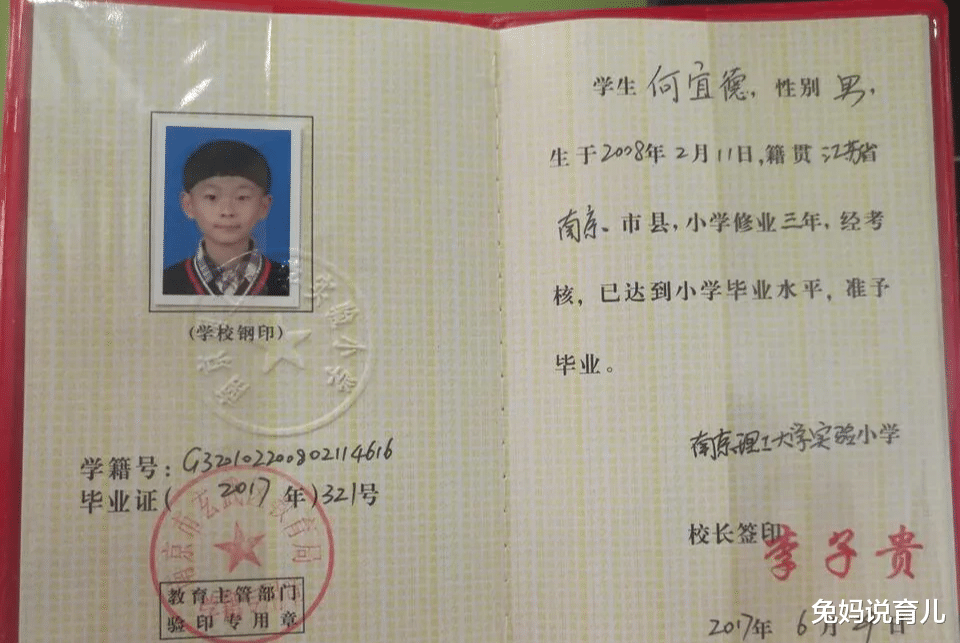 (学校钢印)
学籍号:G320102200802114616
毕业证(2017年)321号
南京市玄武区教育局
教育主管部门
验印专用章
学生 何宜德,性别 男,
生于2008年2月11日,籍贯 江苏省
南京 市县,小学修业三年,经考
核,已达到小学毕业水平,准予
毕业。
南京理工大学实验小学
校长签印
李子贵
2017年 6月 日
兔妈说育儿